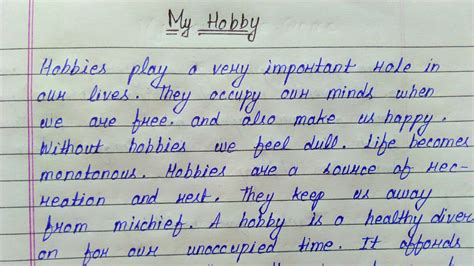 My Hobby
Hobbies play a very important role in
our lives. They occupy our minds when
we are free. and also make us happy.
Without hobbies we feel dull. Life becomes
monotonous. Hobbies are a source of rec-
reation and rest. They keep us away
from mischief. A hobby is a healthy diver
on for our unoccupied time. It affords